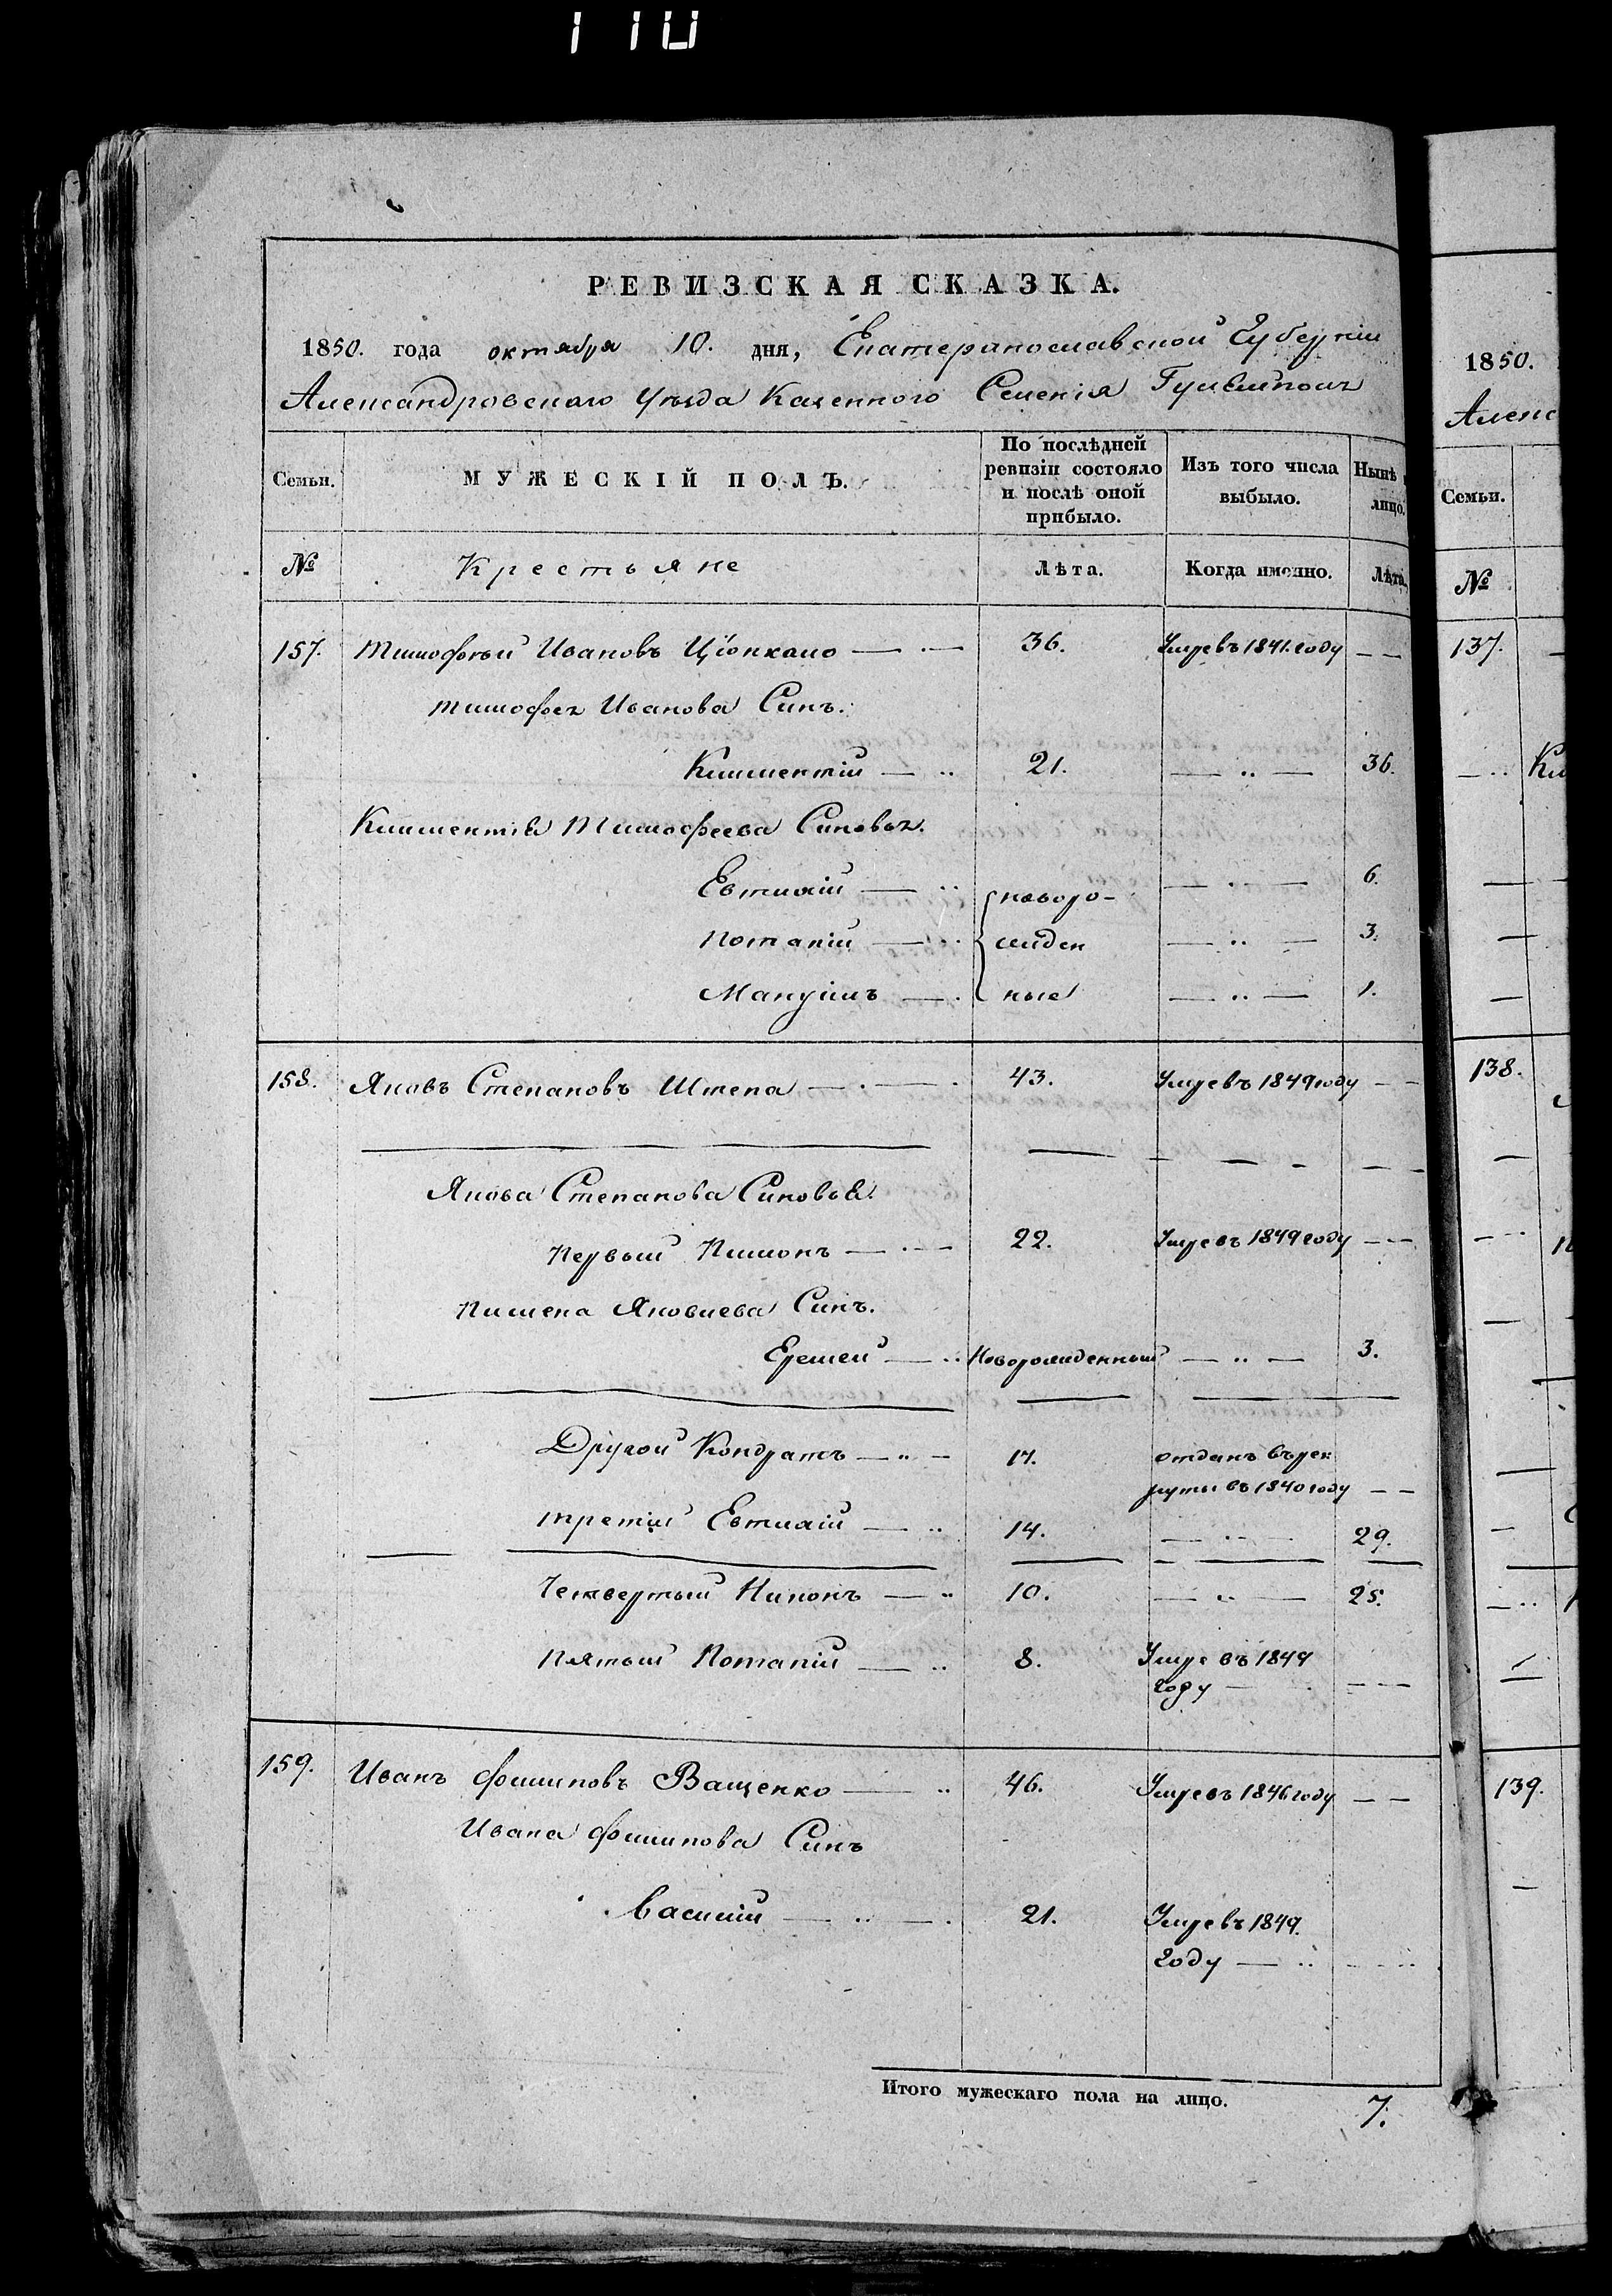 РЕВИЗСКАЯ СКАЗКА.
1850. года октября 10. дня, Екатеринославской Губернiи
Александровскаго Уезда Казенного Селенiя Гуляйполя
Семьи.
МУЖЕСКIЙ ПОЛЪ.
По послѣдней ревизiи состояло и послѣ оной прибыло.
Изъ того числа выбыло.
Нынѣ
лицо.
№ Крестьяне Лѣта. Когда именно. Лѣта.
157. Тимофѣй Ивановъ 36. Умре въ 1841. году — —
Тимофея Иванова Синъ.
Климентiй — .. 21. — .. — 36.
Климентiя Тимофеева Синовья.
Евтихiй — .. новоро- — .. — 6.
Потапiй — .. жден — .. — 3.
Мануилъ — . ные — .. — 1.
158. Яковъ Степановъ Штепа — . — . 43. Умре въ 1849 году — —
Якова Степанова Синовья.
Первый Пимонъ — . — 22. Умре въ 1849 году — —
Пимена Яковлева Синъ.
Еремей — .. Новорожденный — .. — 3.
Другой Кондратъ — .. — 17. отданъ въ рек
руты въ 1840 году — —
третiй Евтихiй — .. 14. — .. — 29.
Четвертый Никонъ — .. 10. — .. — 25.
Пятый Потапiй — .. 8. Умре въ 1849
году — — —
159. Иванъ Филиповъ Ващенко — .. 46. Умре въ 1846 году — —
Ивана Филипова Синъ
Василiй — .. — . 21. Умре въ 1849.
году — ..
Итого мужескаго пола на лицо. 7.
1850.
Алекс
Семьи.
№
137.
Кли
138.
139.